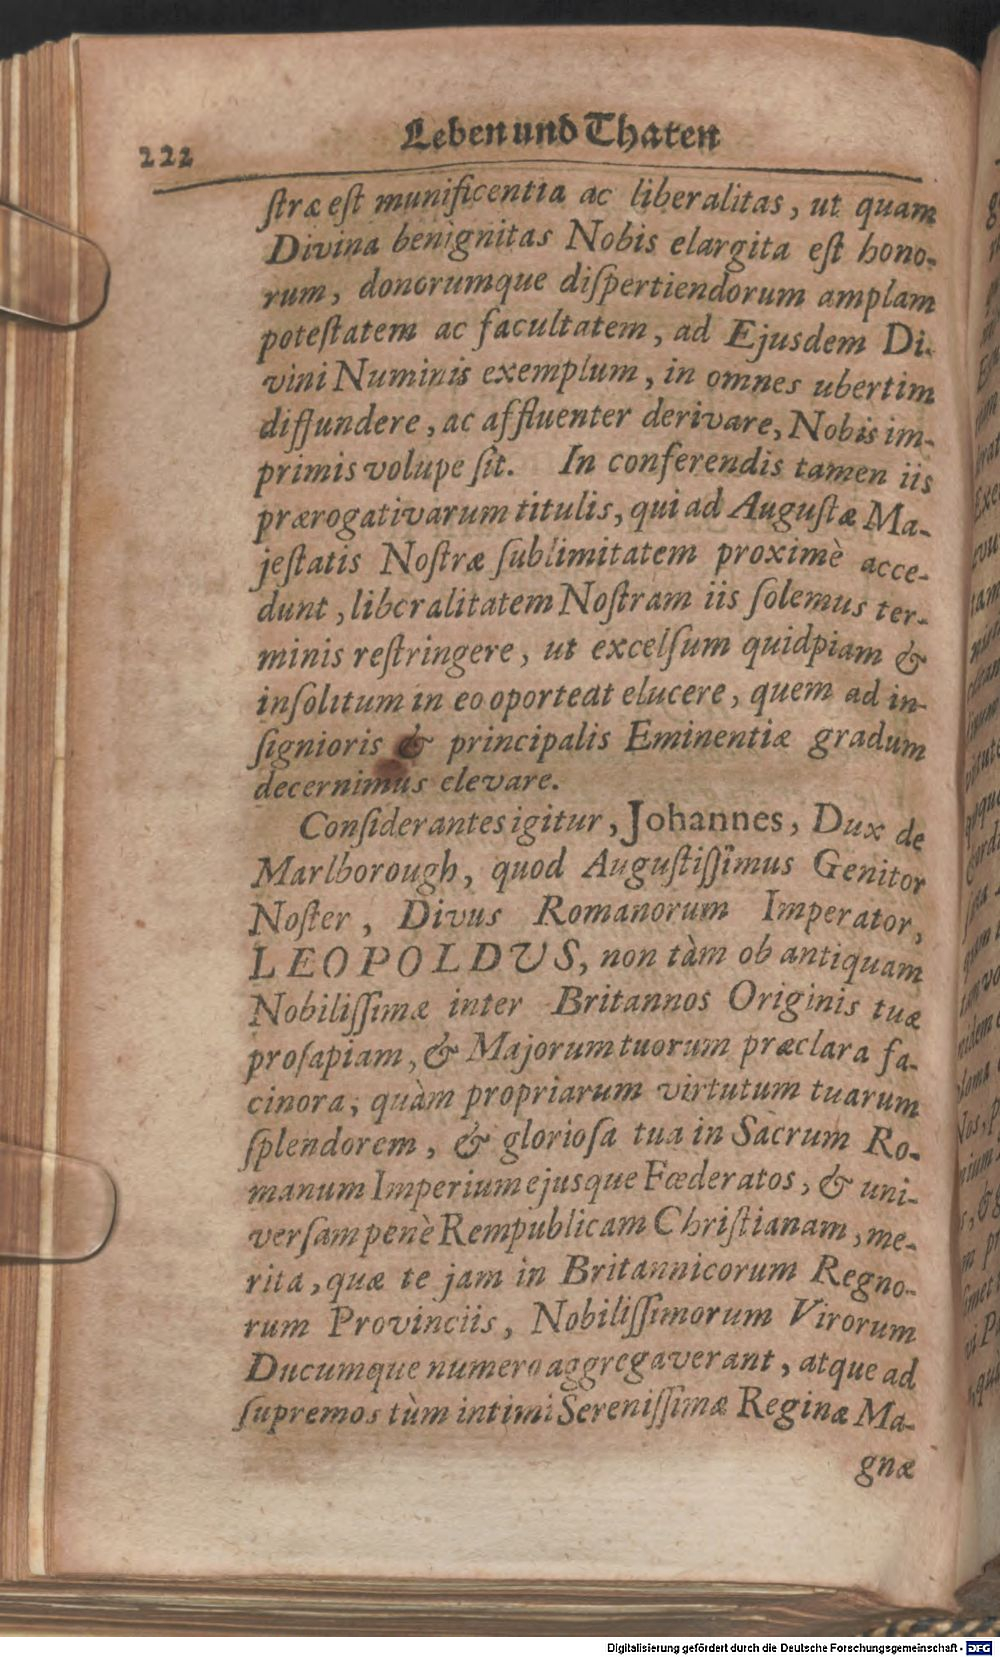 222
Leben und Thaten
ſtræ eſt munificentia ac liberalitas, ut quam
Divina benignitas Nobis elargita eſt hono-
rum, donorumque diſpertiendorum amplam
poteſtatem ac facultatem, ad Ejusdem Di-
vini Numinis exemplum, in omnes ubertim
diffundere, ac affluenter derivare, Nobis im-
primis volupe ſit. In conferendis tamen iis
prærogativarum titulis, qui ad Auguſtæ Ma-
jeſtatis Noſtræ ſublimitatem proximè acce-
dunt, liberalitatem Noſtram iis ſolemus ter-
minis reſtringere, ut excelſum quidpiam &
inſolitum in eo oporteat elucere, quem ad in-
ſignioris & principalis Eminentiæ gradum
decernimus elevare.
Conſiderantes igitur, Johannes, Dux de
Marlborough, quod Auguſtiſſimus Genitor
Noſter, Divus Romanorum Imperator,
LEOPOLDUS, non tàm ob antiquam
Nobiliſſimæ inter Britannos Originis tuæ
proſapiam, & Majorum tuorum præclara fa-
cinora, quàm propriarum virtutum tuarum
ſplendorem, & glorioſa tua in Sacrum Ro-
manum Imperium ejusque Fœderatos, & uni-
verſam penè Rempublicam Chriſtianam, me-
rita, quæ te jam in Britannicorum Regno-
rum Provinciis, Nobiliſſimorum Virorum
Ducumque numero aggregaverant, atque ad
ſupremos tùm intimi Sereniſſimæ Reginæ Ma-
gnæ
Digitalisierung gefördert durch die Deutsche Forschungsgemeinschaft - DFG